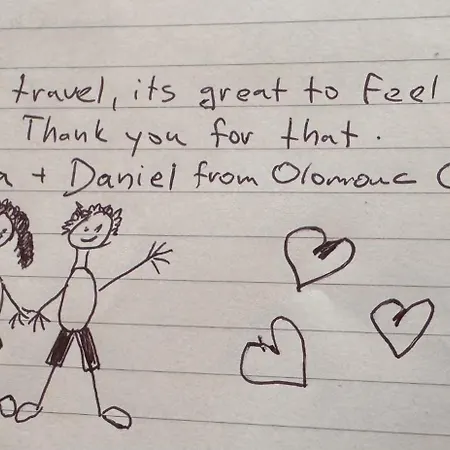 travel, its great to feel
Thank you for that.
a + Daniel from Olomouc